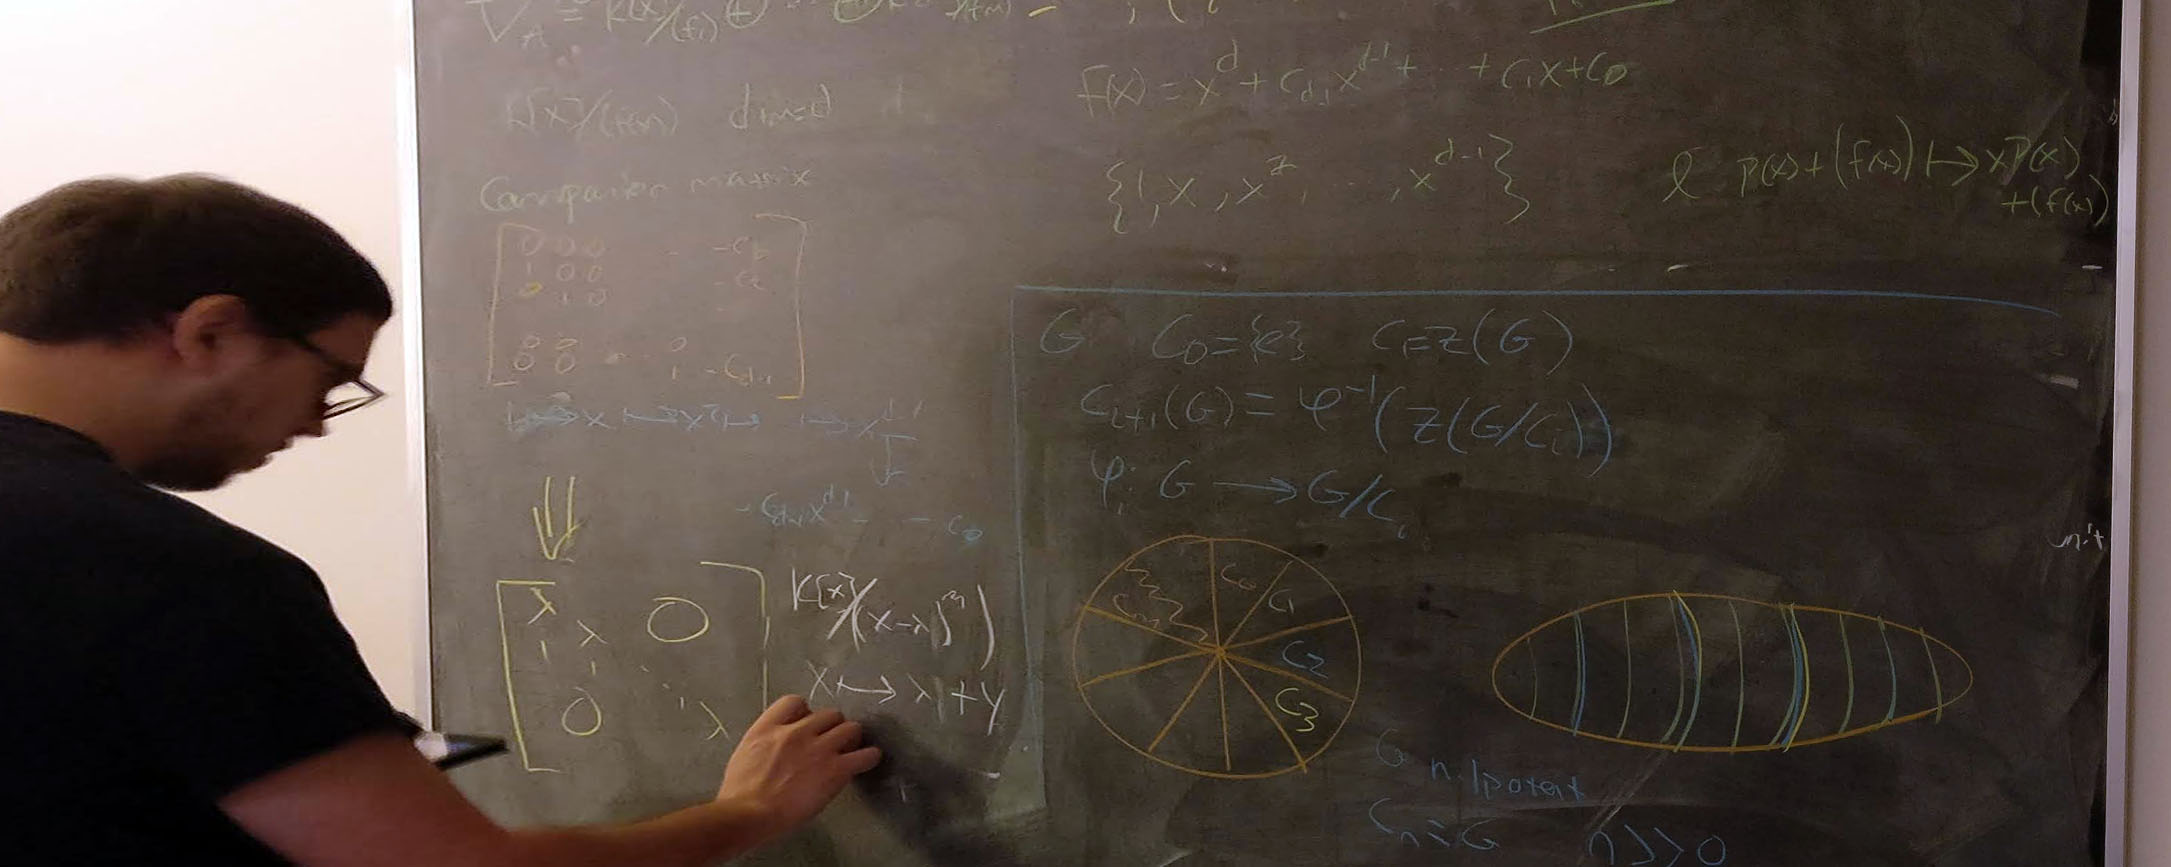 V_A ≅ K[x]/(f₁) ⊕
K[x]/(f(x)) dim=d
Companion matrix
0 0 0 -c₀
1 0 0
0 1 0
0 0 0
0 0 1 -c_{d-1}
1 ↦ x ↦ x² ↦ ↦ x^{d-1}
-c_{d-1}x^{d-1} - c₀
λ
1 λ 0
1
0 λ
K[x]/(x-λ)^m)
x ↦ λ + y
f(x) = x^d + c_{d-1}x^{d-1} + ... + c₁x + c₀
{1, x, x², ..., x^{d-1}}
ℓ p(x)+(f(x)) ↦ xP(x)
+(f(x))
G C₀={e} C₁=Z(G)
C_{i+1}(G) = φ⁻¹(Z(G/C_i))
φ_i: G → G/C_i
C₀
C₁
C₂
C₃
C_n
G nilpotent
C_n = G n>>0
unit